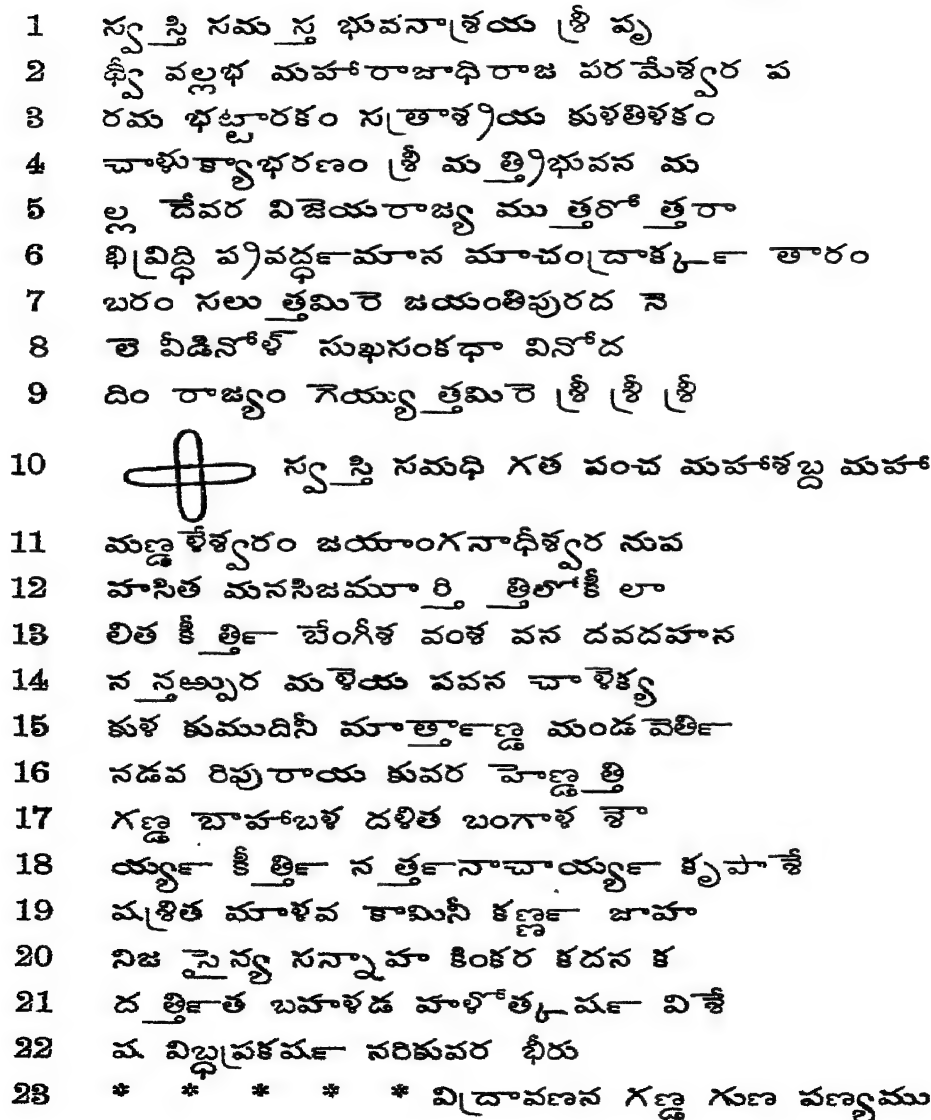 1 స్వస్తి సమస్త భువనాశ్రయ శ్రీ పృ
2 థ్వీ వల్లభ మహారాజాధిరాజ పరమేశ్వర ప
3 రమ భట్టారకం సత్రాశ్రయ కుళతిళకం
4 చాళుక్యాభరణం శ్రీ మత్త్రిభువన మ
5 ల్ల దేవర విజెయరాజ్య ముత్తరోత్తరా
6 భివ్రిద్ధి ప్రవర్ద్ధమాన మాచంద్రార్క్క తారం
7 బరం సలుత్తమిరె జయంతిపురద నె
8 లె వీడినోళ్ సుఖసంకథా వినోద
9 దిం రాజ్యం గెయ్యుత్తమిరె శ్రీ శ్రీ శ్రీ
10 స్వస్తి సమధి గత పంచ మహాశబ్ద మహా
11 మణ్డళేశ్వరం జయాంగనాధీశ్వర నుప
12 హసిత మనసిజమూర్తి త్రిలోకీ లా
13 లిత కీర్త్తి బేంగీశ వంశ వన దవదహన
14 నన్తఱ్పుర మళెయ పవన చాళెక్య
15 కుళ కుముదినీ మార్త్తాణ్డ మండవెర్తి
16 నడవ రిపురాయ కువర హెణ్డత్తి
17 గణ్డ బాహాబళ దళిత బంగాళ శౌ
18 ర్య్య కీర్త్తి నర్త్తనాచార్య్య కృపాశే
19 షశ్రిత మాళవ కామినీ కర్ణ్ణ జాహ
20 నిజ సైన్య సన్నాహ కింకర కదన క
21 దర్త్తిత బహళడ హళోత్కర్ష విశే
22 ష విబ్ధప్రకర్ష నరికువర భీరు
23 * * * * * విద్రావణన గణ్డ గుణ పణ్యము